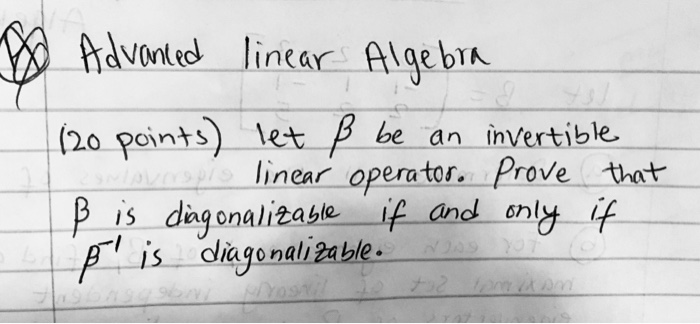 Advanced linear Algebra
(20 points) let β be an invertible
linear operator. Prove that
β is diagonalizable if and only if
β⁻¹ is diagonalizable.